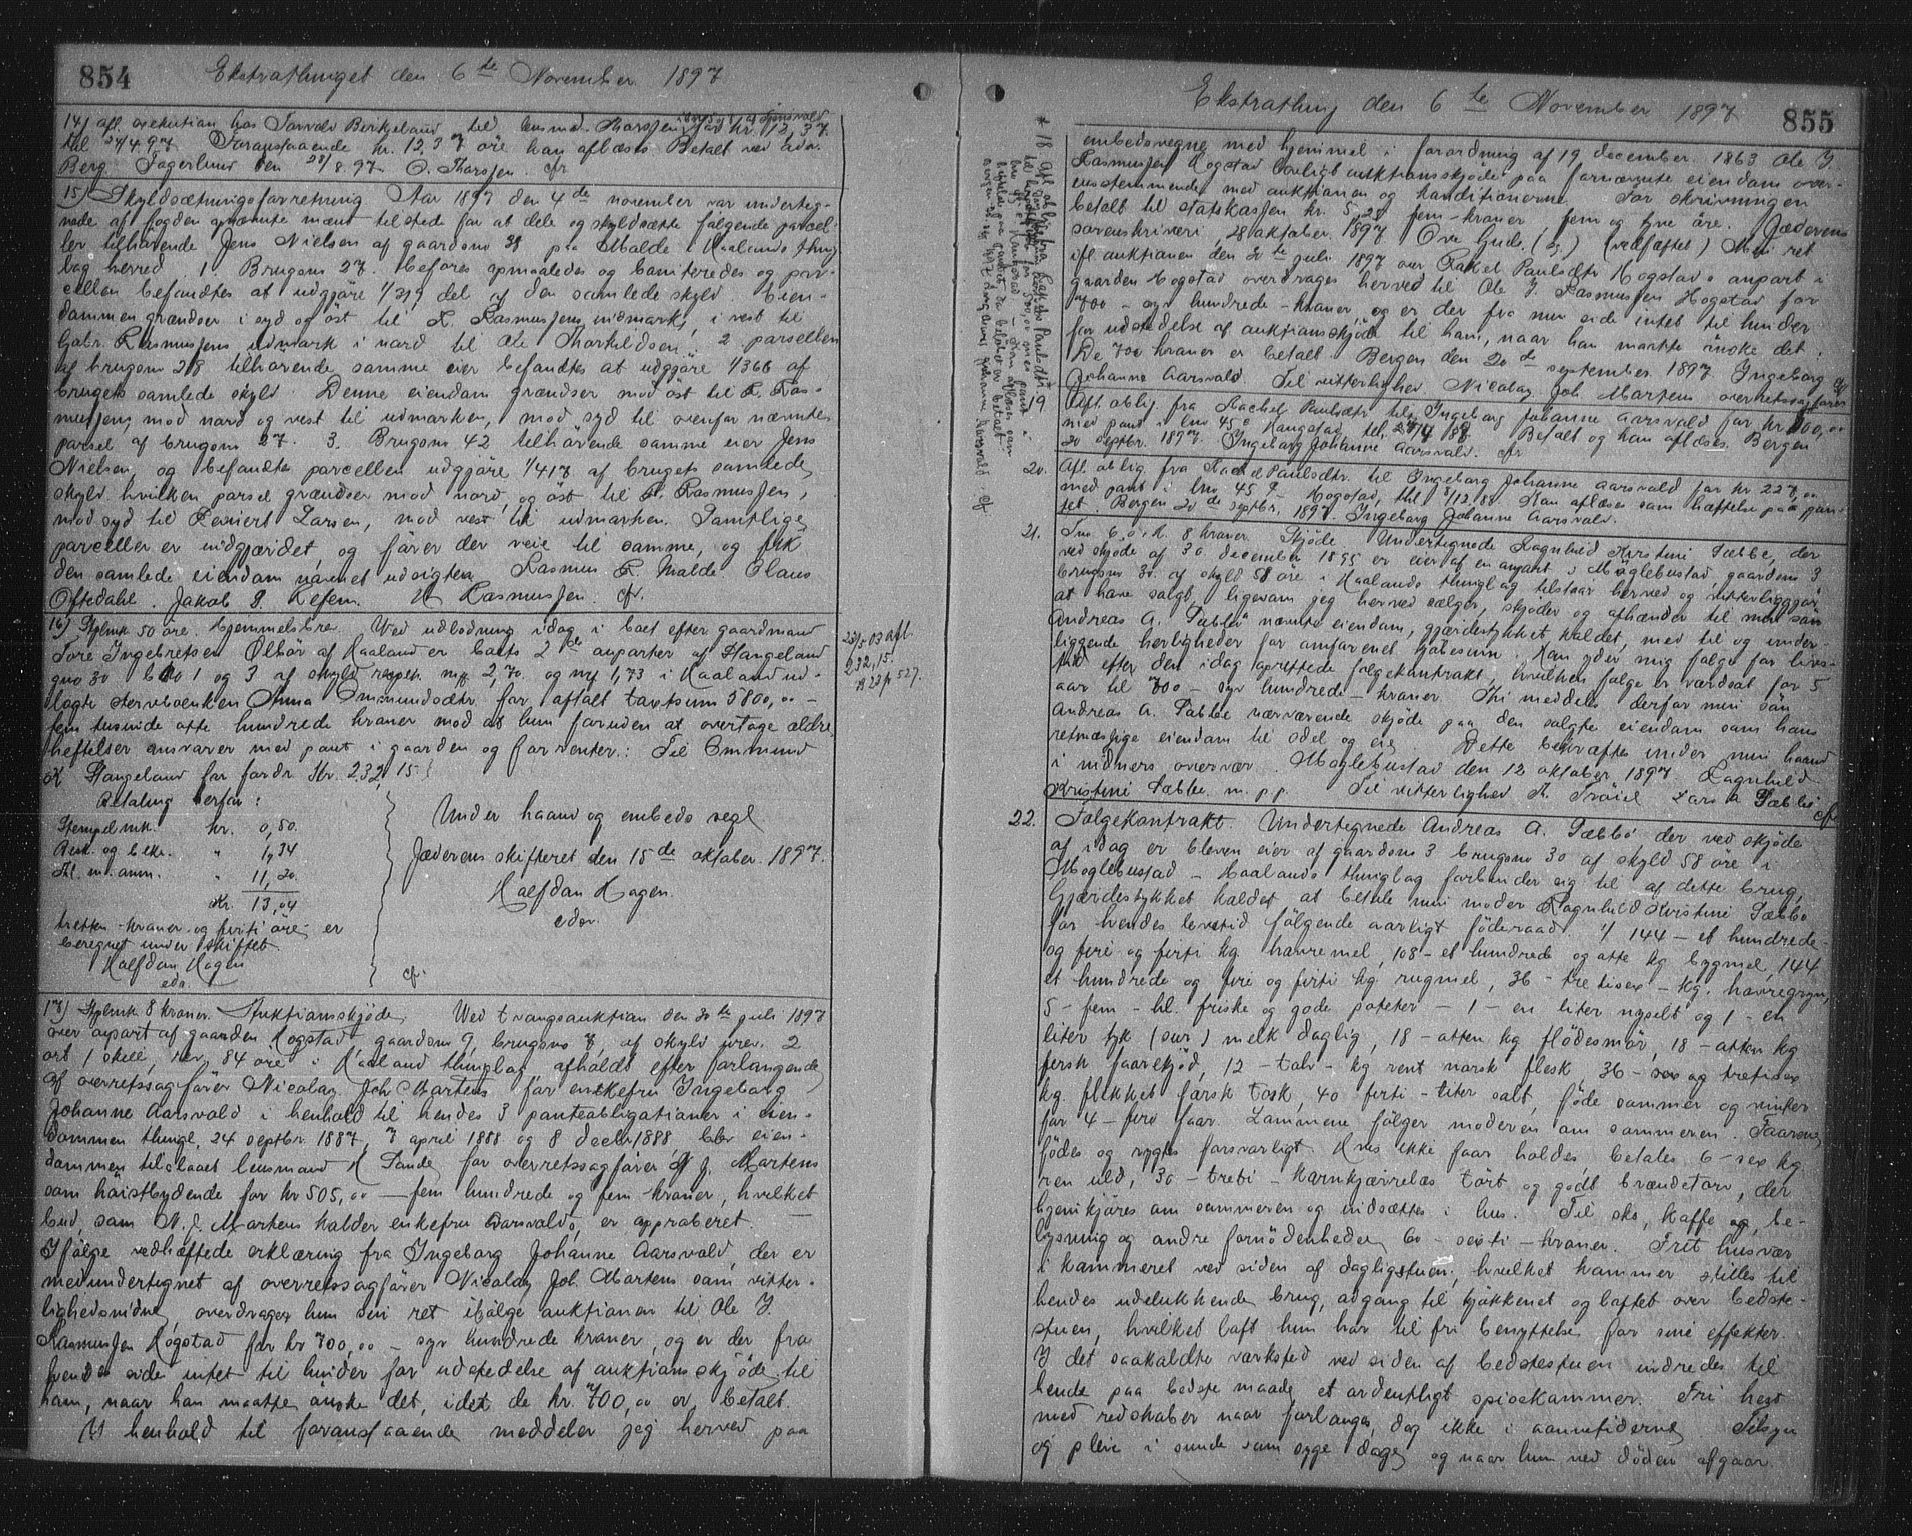 854
Ekstrathinget den 6te November 1897
14) afl. exekution hos Torvald Birkeland til lensmd. Thorsen for kr. 12,37
til 24/4 97 Foranstaaende kr. 12,37 öre kan aflæses Betalt ved adv.
Berg. Fagerlund den 28/8 97 O. Thorsen. cfr
15) Skyldsætningsforretning Aar 1897 den 4de november var underteg-
nede af fogden opnævnte mænd tilstede for at dele og skyldsætte følgende parcel-
ler tilhørende Jens Nielsen af gaardsno 38 paa Malde i Haalands thing
lag herred. 1. Brugsno 27. Beføres opmaaledes og boniteredes og par-
cellen befandtes at udgjöre 1/319 del af den samlede skyld. Eien-
dommen grændser i syd og öst til R. Rasmussens indmark, i vest til
Gabr. Rasmussens udmark i nord til Ole Thorkildsen. 2 parsellen
af brugsno 28 tilhørende samme eier befandtes at udgjöre 1/366 af
brugets samlede skyld. Denne eiendom grændser mod öst til R. Ras-
mussen, mod nord og vest til udmarken, mod syd til ovenfor nævnte
parsel af brugsno 27. 3. Brugsno 42 tilhörende samme eier Jens
Nielsen og befandtes parcellen udgjöre 1/417 af brugets samlede
skyld hvilken parsel grændser mod nord og öst til R. Rasmussen,
mod syd til Reniert Larsen, mod vest til udmarken. Samtlige
parceller er indgjærdet, og förer der veie til samme, og fik
den samlede eiendom navnet udsigten Rasmus R. Malde. Olaus
Oftedahl. Jakob S. Refem. Rasmussen. cfr.
16) Stplmk 50 öre. Hjemmelsbrev. Ved udlodning idag i boet efter gaardmand
Tore Ingebretsen Ölbör af Haaland er boets 2de anparter af Stangeland
gno 30 bno 1 og 3 af skyld respek. mk 2,70 og mk 1,73 i Haaland ud-
lagt sterboenken Anna Ommundsdtr for aftalt taxtsum 5800,00 -
fem tusinde otte hundrede kroner mod at hun foruden at overtage ældre
heftelser ansvarer med pant i gaarden og for renter: Til Ommund
Stangeland for fordr. Kr. 232,15
23/5 03 afl.
232,15.
B 23 p 527.
Betaling herfor:
Stempel mk. kr. 0,50.
Besk. og bekr. " 1,34
Thl. m. anm. " 11,20.
Kr. 13,04
tretten-kroner og firti öre er
beregnet under skiftet.
Halfdan Hagen
edv.
Under haand og embeds segl
Jæderens skifteret den 15de oktober 1897.
Halfdan Hagen
edv.
cfr.
17) Stplmk. 8 kroner. Auktionsskjöde. Ved tvangsauktion den 30te juli 1897
over anpart af gaarden Hogstad gaardsno 9, brugsno 7, af skyld urev. 2
ort, 1 skill, rev. 84 öre i Haaland thinglag afholdt efter forlangende
af overretssagförer Nicolay Joh Martens for enkefru Ingeborg
Johanne Aarsvold i henhold til hendes 3 panteobligationer i eien-
dommen thingl. 24 septbr. 1887, 7 april 1888 og 8 decbr 1888, blev eien-
dommen tilslaaet lensmand H Sande for overretssagförer N J. Martens
som höistbydende for kr 505,00 - fem hundrede og fem-kroner, hvilket
bud, som N. J. Martens holder enkefru Aarsvolds, er approberet.
Ifölge vedheftede erklæring fra Ingeborg Johanne Aarsvold, der er
medundertegnet af overretssagförer Nicolay Joh. Martens som vitter-
lighedsvidne, overdrager hun sin ret ifölge auktionen til Ole J.
Rasmussen Hogstad for kr 700,00 - syv hundrede kroner, og er der fra
hendes side intet til hinder for udstedelse af auktions skjöde til
ham, naar han maatte önske det, idet de kr. 700,00 er betalt.
I henhold til foranstaaende meddeler jeg herved paa
Ekstrathing den 6te November 1897
855
embedsvegne med hjemmel i forordning af 19 december 1863 Ole J.
Rasmussen Hogstad lovligt auktionsskjöde paa fornævnte eiendom over-
ensstemmende med auktionen og konditionerne. For skrivningen
betalt til statskassen kr. 5,25 fem-kroner fem og tyve öre. Jæderens
sorenskriveri, 28 oktober 1897 Ove Gude. (sg.) (vedheftet) Min ret
ifl auktionen den 30te juli 1897 over Rakel Paulsdtr Hogstads anpart i
gaarden Hogstad overdrages herved til Ole J. Rasmussen Hogstad for
700 - syv hundrede - kroner og er der fra min side intet til hinder
for udstedelse af auktionsskjöde til ham, naar han maatte önske det.
De 700 kroner er betalt Bergen den 20de september 1897 Ingeborg
Johanne Aarsvold Til vitterlighed Nicolay Joh. Martens overretssagförer
* 18 afl. oblig fra Rakel Paulsdtr
19 Afl. oblig fra Rachel Paulsdtr til Ingeborg Johanne Aarsvold for kr 300,00
med pant i lno 45c Haugstad, thl. 7/4 88 Betalt og kan aflæses. Bergen
20 septbr. 1897. Ingeborg Johanne Aarsvold. cfr
20. Afl. oblig. fra Rachel Paulsdtr. til Ingeborg Johanne Aarsvold for kr 227,00
med pant i lno 45c Hogstad, thl 8/12 88 Kan aflæses som hæftelse paa pan-
tet. Bergen 20de septbr. 1897 Ingeborg Johanne Aarsvold.
21. Tno 6 o. K. 8 kroner. Skjöde Undertegnede Ragnhild Kristine Tæbbe, der
ved skjöde af 30 december 1895 er eier af en anpart i Möglebustad, gaardsno 3
brugsno 30 af skyld 58 öre i Haalands thinglag tilstaar herved og vitterliggjör
at have solgt, ligesom jeg herved sælger, skjöder og afhænder til min sön
Andreas A. Tæbbö nævnte eiendom, gjærdestykket kaldet, med til og under-
liggende herligheder for omforenet kjøbesum. Han yder mig folge for livs-
tid efter den idag oprettede folgekontrakt, hvilken folge er værdsat for 5
aar til 700 - syv hundrede - kroner. Thi meddeles derfor min sön
Andreas A. Tæbbe nærværende skjöde paa den solgte eiendom som hans
retmæssige eiendom til odel og eie. Dette bekræftes under min haand
i vidners overvær. Moglebustad den 12 oktober 1897 Ragnhild
Kristine Tæbbe. m. p. p. Til vitterlighed Lars A. Tæbbe cfr
22. Folgekontrakt. Undertegnede Andreas A. Tæbbö der ved skjöde
af idag er bleven eier af gaardsno 3 brugsno 30 af skyld 58 öre i
Moglebustad - Haalands thinglag forbinder sig til af dette brug,
Gjærdestykket kaldet at betale min moder Ragnhild Kristine Tæbbö
for hendes levetid fölgende aarligt föderaad. 1/ 144 - et hundrede
og fire og förti kg havremel, 108 - et hundrede og otte kg bygmel, 144
et hundrede og fire og förti kg. rugmel, 36 - tretisex - kg. havregryn,
5 - fem - hl. friske og gode poteter - 1 - en liter nysilt og 1 - en
liter tyk (sur) melk daglig, 18 - atten kg flödesmör, 18 - atten kg
fersk faarekjöd, 12 - tolv - kg rent norsk flesk, 36 - sex og tretisex
kg. flekket færsk torsk, 40 förti - liter salt, föde sommer og vinter
for 4 - fire faar. Lammene fölger moderen om sommeren. Faarene
födes og rygtes forsvarligt. Hvis ikke faar holdes, betales 6 - sex kg
ren uld, 30 - treti - Karnkjærrelæs tört og godt brændetorv, der
hjemkjöres om sommeren og indsættes i hus. Til sko, kaffe og be-
lysning og andre fornödenheder, 60 - sexti - kroner. Frit husvær
i kammeret ved siden af dagligstuen, hvilket kammer stilles til
hendes udelukkende brug, adgang til kjökkenet og loftet over bedste-
stuen, hvilket loft hun har til fri benyttelse for sine effekter.
I det saakaldte værksted ved siden af bedstestuen indredes til
hende paa bedste maade et ordentligt spisekammer. Fri hest
med redskaber naar forlanges, dog ikke i aannetiderne. Tilsyn
og pleie i sunde som syge dage og naar hun ved döden afgaar